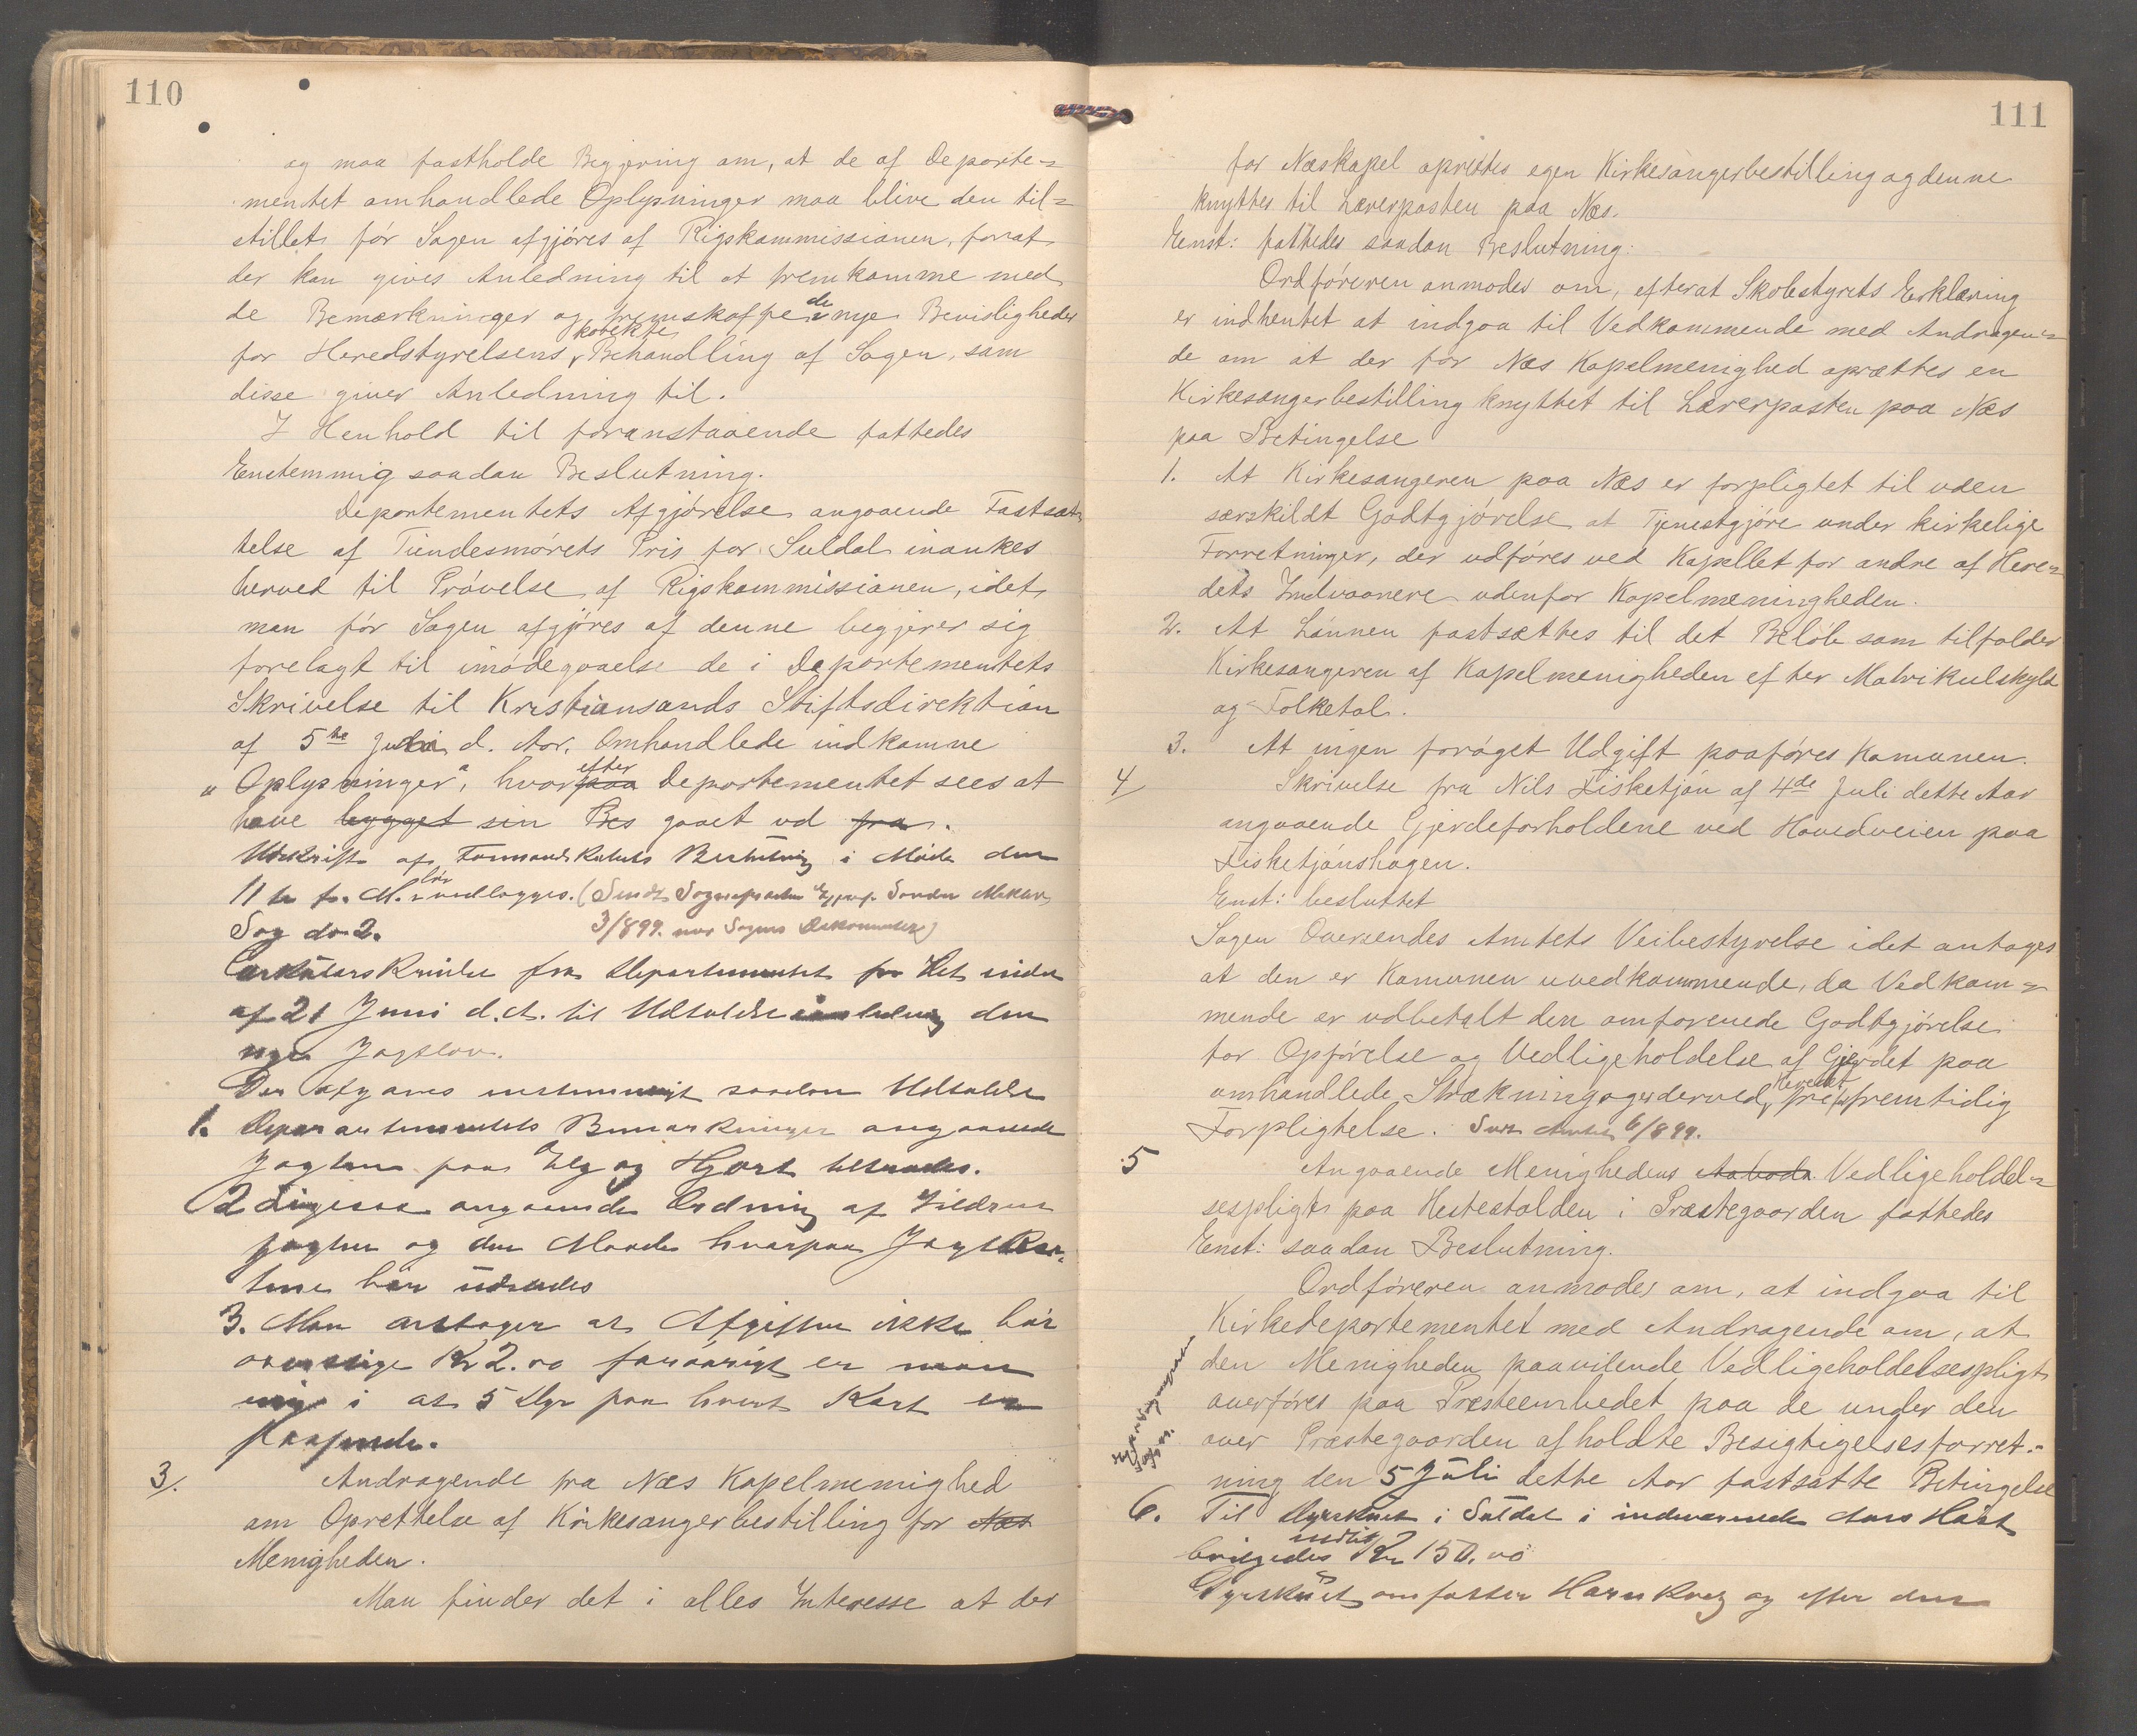 110
og maa fastholde Begjering om, at de af Departe=
mentet omhandlede Oplysninger maa blive den til=
stillet før Sagen afgjøres af Rigskommissionen, forat
der kan gives Anledning til at fremkomme med
de Bemærkninger og fremskaffe de nye Bevisligheder
for Heredstyrelsens korekte Behandling af Sagen, som
disse giver Anledning til.
I Henhold til foranstaaende fattedes
Enstemmig saadan Beslutning.
Departementets Afgjørelse angaaende Fastsæt
telse af Tiendesmørets Pris for Suldal inankes
herved til Prøvelse af Rigskommissionen, idet
man før Sagen afgjøres af denne begjerer sig
forelagt til imødegaaelse de i Departementets
Skrivelse til Kristiansands Stiftsdirektion
af 5te Juli d. Aar. Omhandlede indkomne
"Oplysninger", hvorefter paa Departementet sees at
have bygget sin Bes gaaet ud fra.
Udskrift af Formandskabets Beslutning i Møde den
11 te f. M. bør vedlægges. (Sendt
3/899.
Sag do 2.
Cirkulærskrivelse fra Departementet for Det indre
af 21 Juni d.A. til Udtalelse den
nye Jagtlov.
Der afgaves enstemmigt saadan Udtalelse
1. Departementets Bemærkninger angaaende
Jagten paa Elg og Hjort tiltrædes.
2 Ligesaa angaaende Ordning af
jagten og den Maade hvorpaa Jagtkor-
tene bør udstedes
3. Man antager at Afgiften ikke bør
overstige Kr 2.00 forøvrigt er man
enig i at 5 Dyr paa hvert Kort er
passende.
3/. Andragende fra Næs Kapelmenighed
om Oprettelse af Kirkesangerbestilling for Næs
Menigheden.
Man finder det i alles Interesse at der
111
for Næskapel oprettes egen Kirkesangerbestilling og denne
knyttes til Lærerposten paa Næs.
Enst: fattedes saadan Beslutning:
Ordføreren anmodes om, efterat Skolestyrets Erklæring
er indhentet at indgaa til Vedkommende med Andragen=
de om at der for Næs Kapelmenighed oprættes en
Kirkesangerbestilling knyttet til Lærerposten paa Næs
paa Betingelse
1. At Kirkesangeren paa Næs er forpligtet til uden
særskildt Godtgjørelse at Tjenestgjøre under kirkelige
Forretninger, der udføres ved Kapellet for andre af Here=
dets Indvaanere udenfor Kapelmenigheden.
2. At Lønnen fastsættes til det Beløb som tilfalder
Kirkesangeren af Kapelmenigheden efter Matrikulskyld
og Folketal.
3. At ingen forøget Udgift paaføres Komunen.
4/ Skrivelse fra Nils Fisketjøn af 4de Juli dette Aar
angaaende Gjerdeforholdene ved Hovedveien paa
Fisketjønshagen.
Enst: besluttet
Sagen Oversendes Amtets Veibestyrelse idet antages
at den er Komunen uvedkommende, da Vedkom=
mende er udbetalt den omforenede Godtgjørelse
for Opførelse og Vedligeholdelse af Gjerdet paa
omhandlede Strækning og er derved Heredet fri for fremtidig
Forpligtelse. Sendt Amtet 6/899.
5 Angaaende Menighedens Aabods Vedligeholdel=
sespligt paa Hestestalden i Præstegaarden fattedes
Enst: saadan Beslutning.
Ordføreren anmodes om, at indgaa til
Kirkedepartementet med Andragende om, at
den Menigheden paavilende Vedligeholdelsespligt
overføres paa Præsteembedet paa de under den
over Præstegaarden afholdte Besigtigelsesforret=
ning den 5 Juli dette Aar fastsatte Betingelse
6. Til Dyrskuet i Suldal i indeværende Aars Høst
bevilgedes indtil Kr 150.00
Dyrskuet omfatter Hornkvæg og efter den